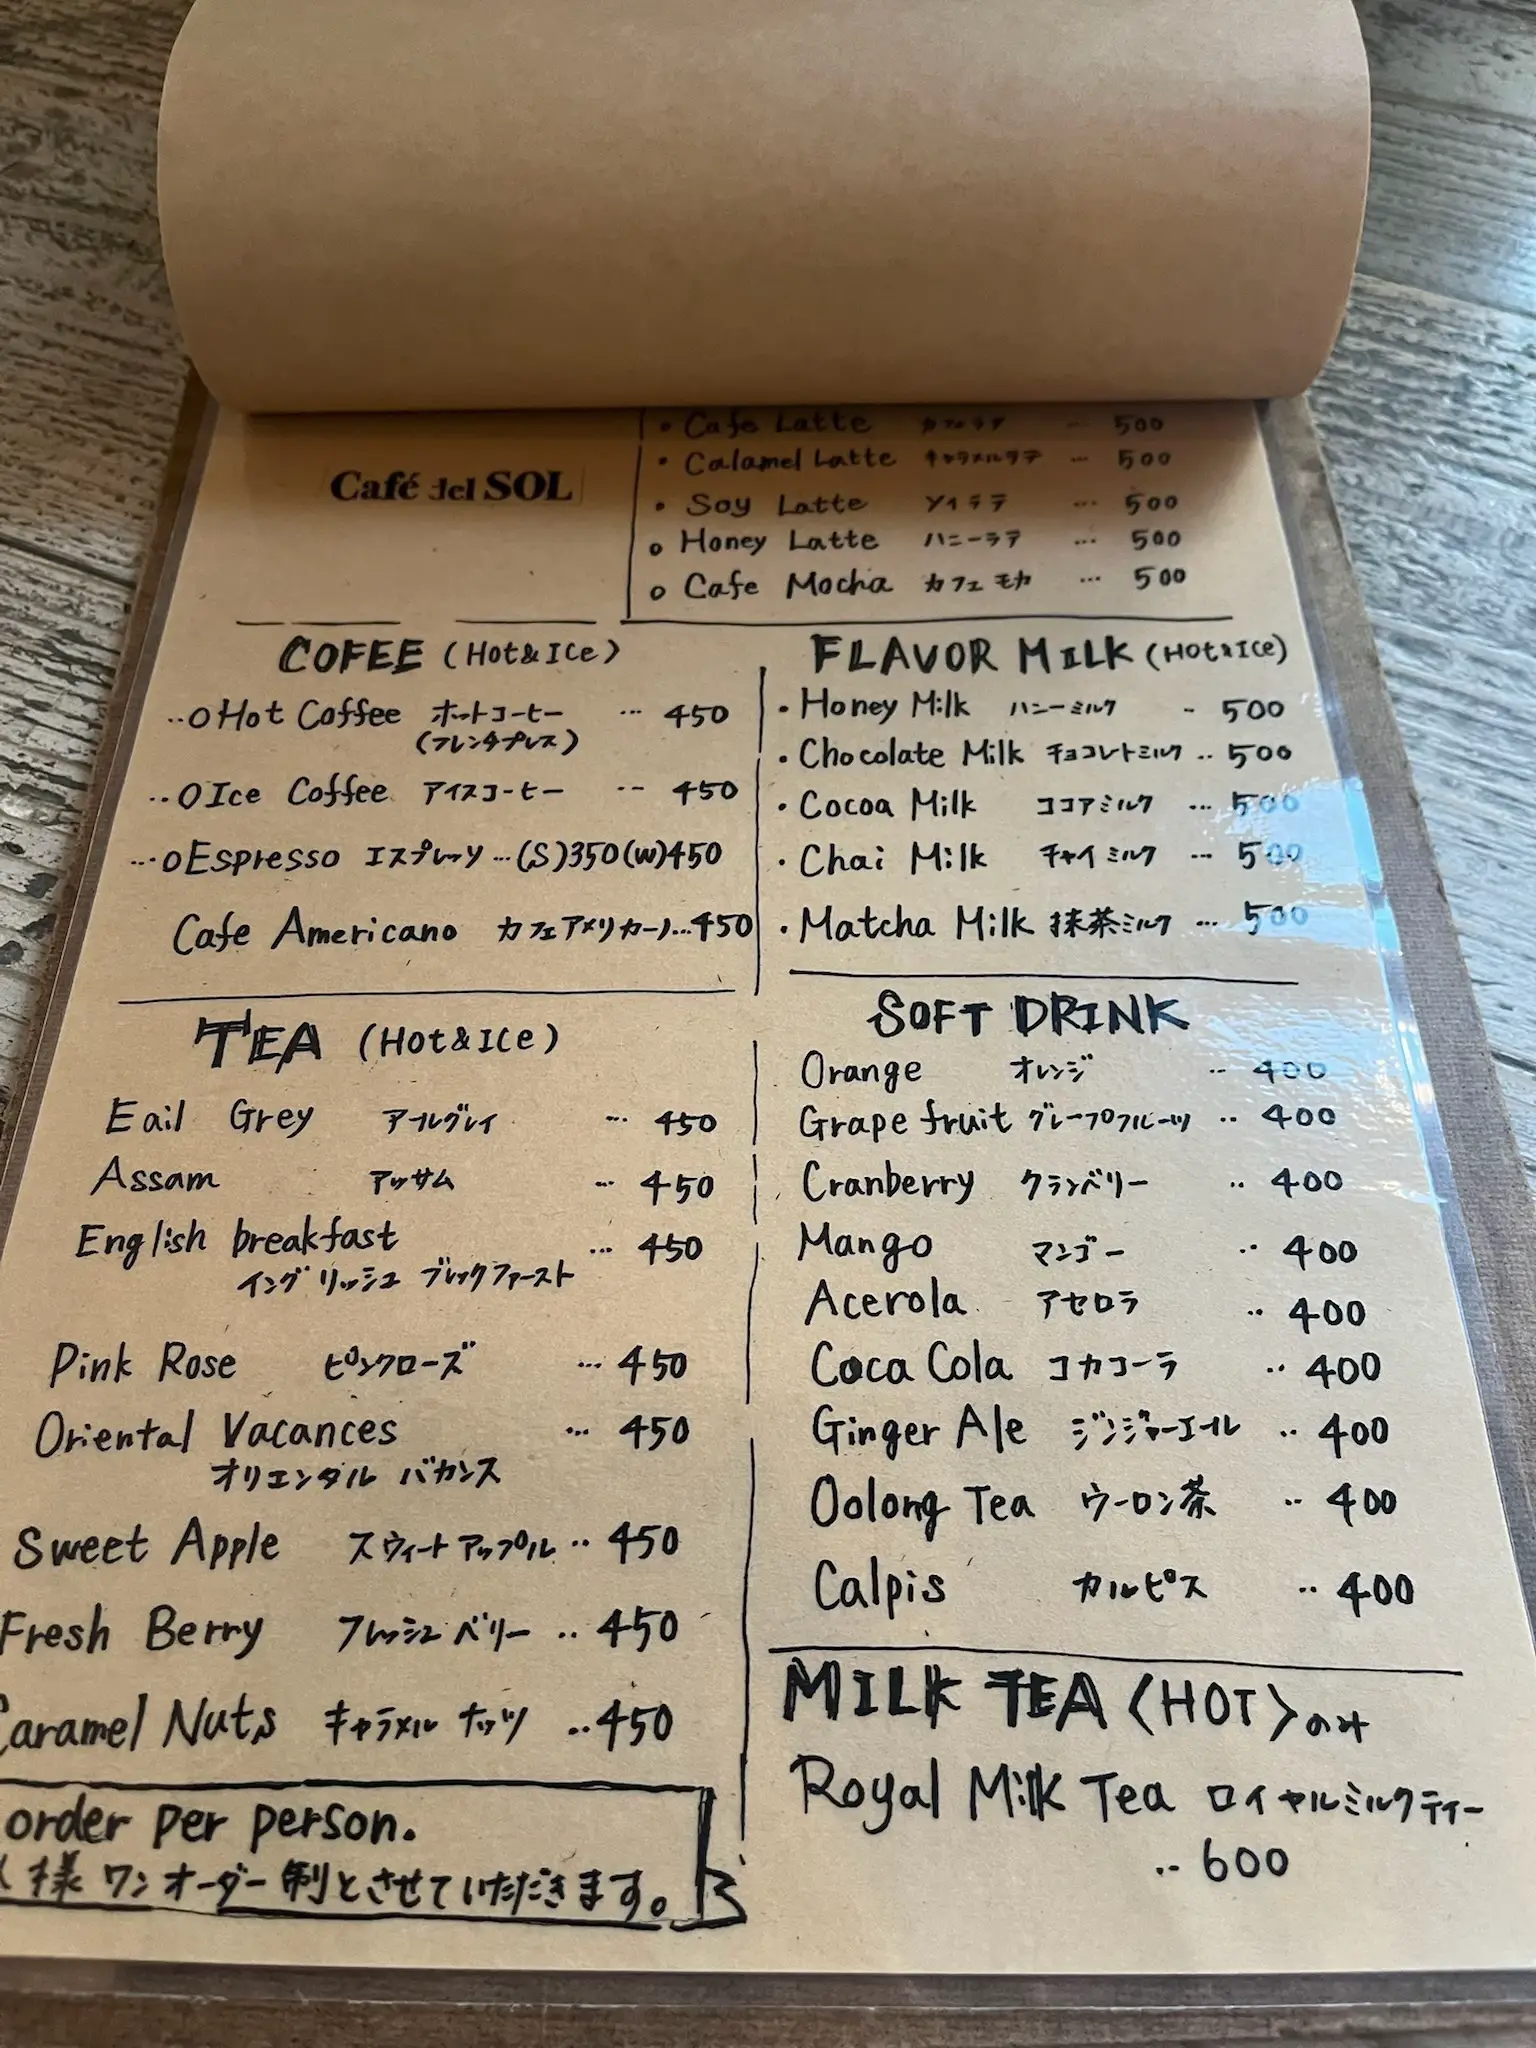 Café del SOL
• Cafe Latte カフェラテ ... 500
• Calamel Latte キャラメルラテ ... 500
• Soy Latte ソイラテ ... 500
o Honey Latte ハニーラテ ... 500
o Cafe Mocha カフェモカ ... 500
COFEE (Hot&ICe)
..O Hot Coffee ホットコーヒー ... 450
(フレンチプレス)
..O Ice Coffee アイスコーヒー -- 450
...O Espresso エスプレッソ ... (S)350(W)450
Cafe Americano カフェアメリカーノ...450
FLAVOR MILK (HOt&ICe)
• Honey Milk ハニーミルク - 500
• Chocolate Milk チョコレートミルク .. 500
• Cocoa Milk ココアミルク ... 500
• Chai Milk チャイミルク ... 500
• Matcha Milk 抹茶ミルク ... 500
TEA (Hot&ICe)
Eail Grey アールグレイ ... 450
Assam アッサム ... 450
English breakfast ... 450
イングリッシュ ブレックファースト
Pink Rose ピンクローズ ... 450
Oriental Vacances ... 450
オリエンタル バカンス
Sweet Apple スウィートアップル .. 450
Fresh Berry フレッシュベリー .. 450
Caramel Nuts キャラメル ナッツ ..450
order per person.
様 ワンオーダー制とさせていただきます。
SOFT DRINK
Orange オレンジ .. 400
Grape fruit グレープフルーツ .. 400
Cranberry クランベリー .. 400
Mango マンゴー .. 400
Acerola アセロラ .. 400
Coca Cola コカコーラ .. 400
Ginger Ale ジンジャーエール .. 400
Oolong Tea ウーロン茶 .. 400
Calpis カルピス .. 400
MILK TEA 〈HOT〉のみ
Royal Milk Tea ロイヤルミルクティー
.. 600